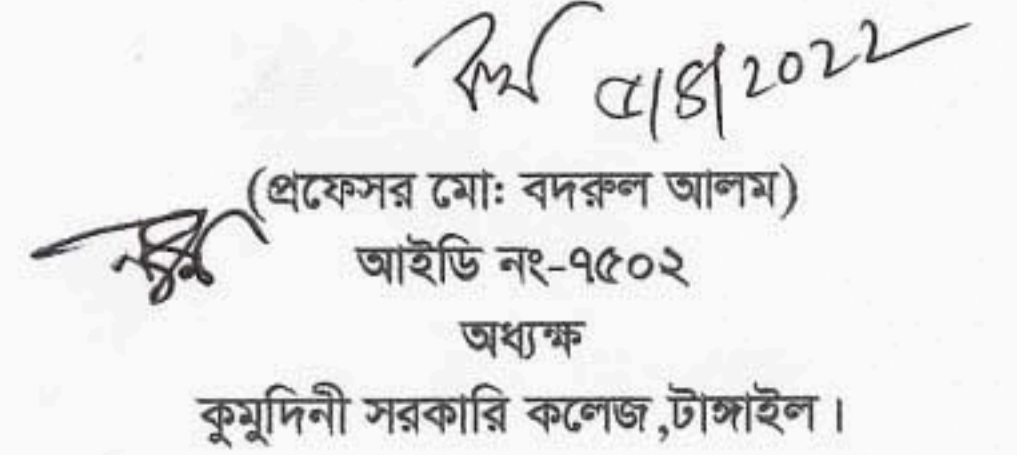 ৫/৪/২০২২
(প্রফেসর মো: বদরুল আলম)
আইডি নং-৭৫০২
অধ্যক্ষ
কুমুদিনী সরকারি কলেজ,টাঙ্গাইল।